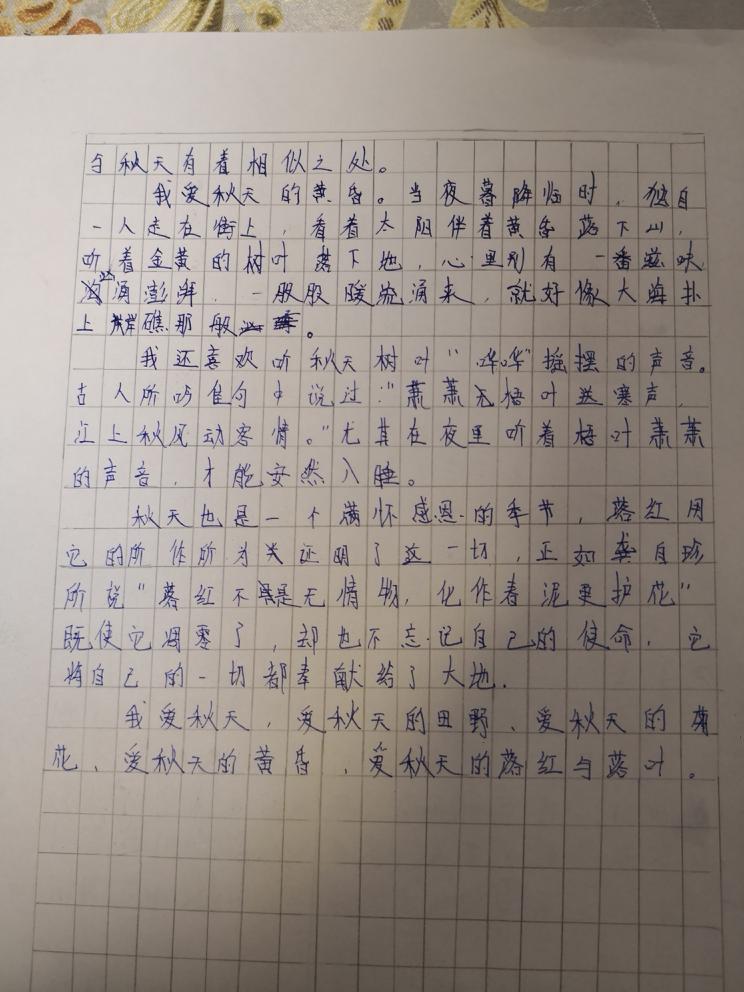 与秋天有着相似之处。
我爱秋天的黄昏。当夜暮降临时，独自
一人走在街上，看着太阳伴着黄昏落下山，
听着金黄的树叶落下地，心里别有一番滋味
汹涌澎湃，一股股暖流涌来，就好像大海扑
上礁那般。
我还喜欢听秋天树叶“哗哗”摇摆的声音。
古人所吟佳句中说过：“萧萧无梧叶送寒声，
江上秋风动客情。”尤其在夜里听着梧叶萧萧
的声音，才能安然入睡。
秋天也是一个满怀感恩的季节，落红用
它的所作所为证明了这一切，正如龚自珍
所说“落红不是无情物，化作春泥更护花”
既使它凋零了，却也不忘记自己的使命，它
将自己的一切都奉献给了大地．
我爱秋天，爱秋天的田野、爱秋天的菊
花、爱秋天的黄昏、爱秋天的落红与落叶。